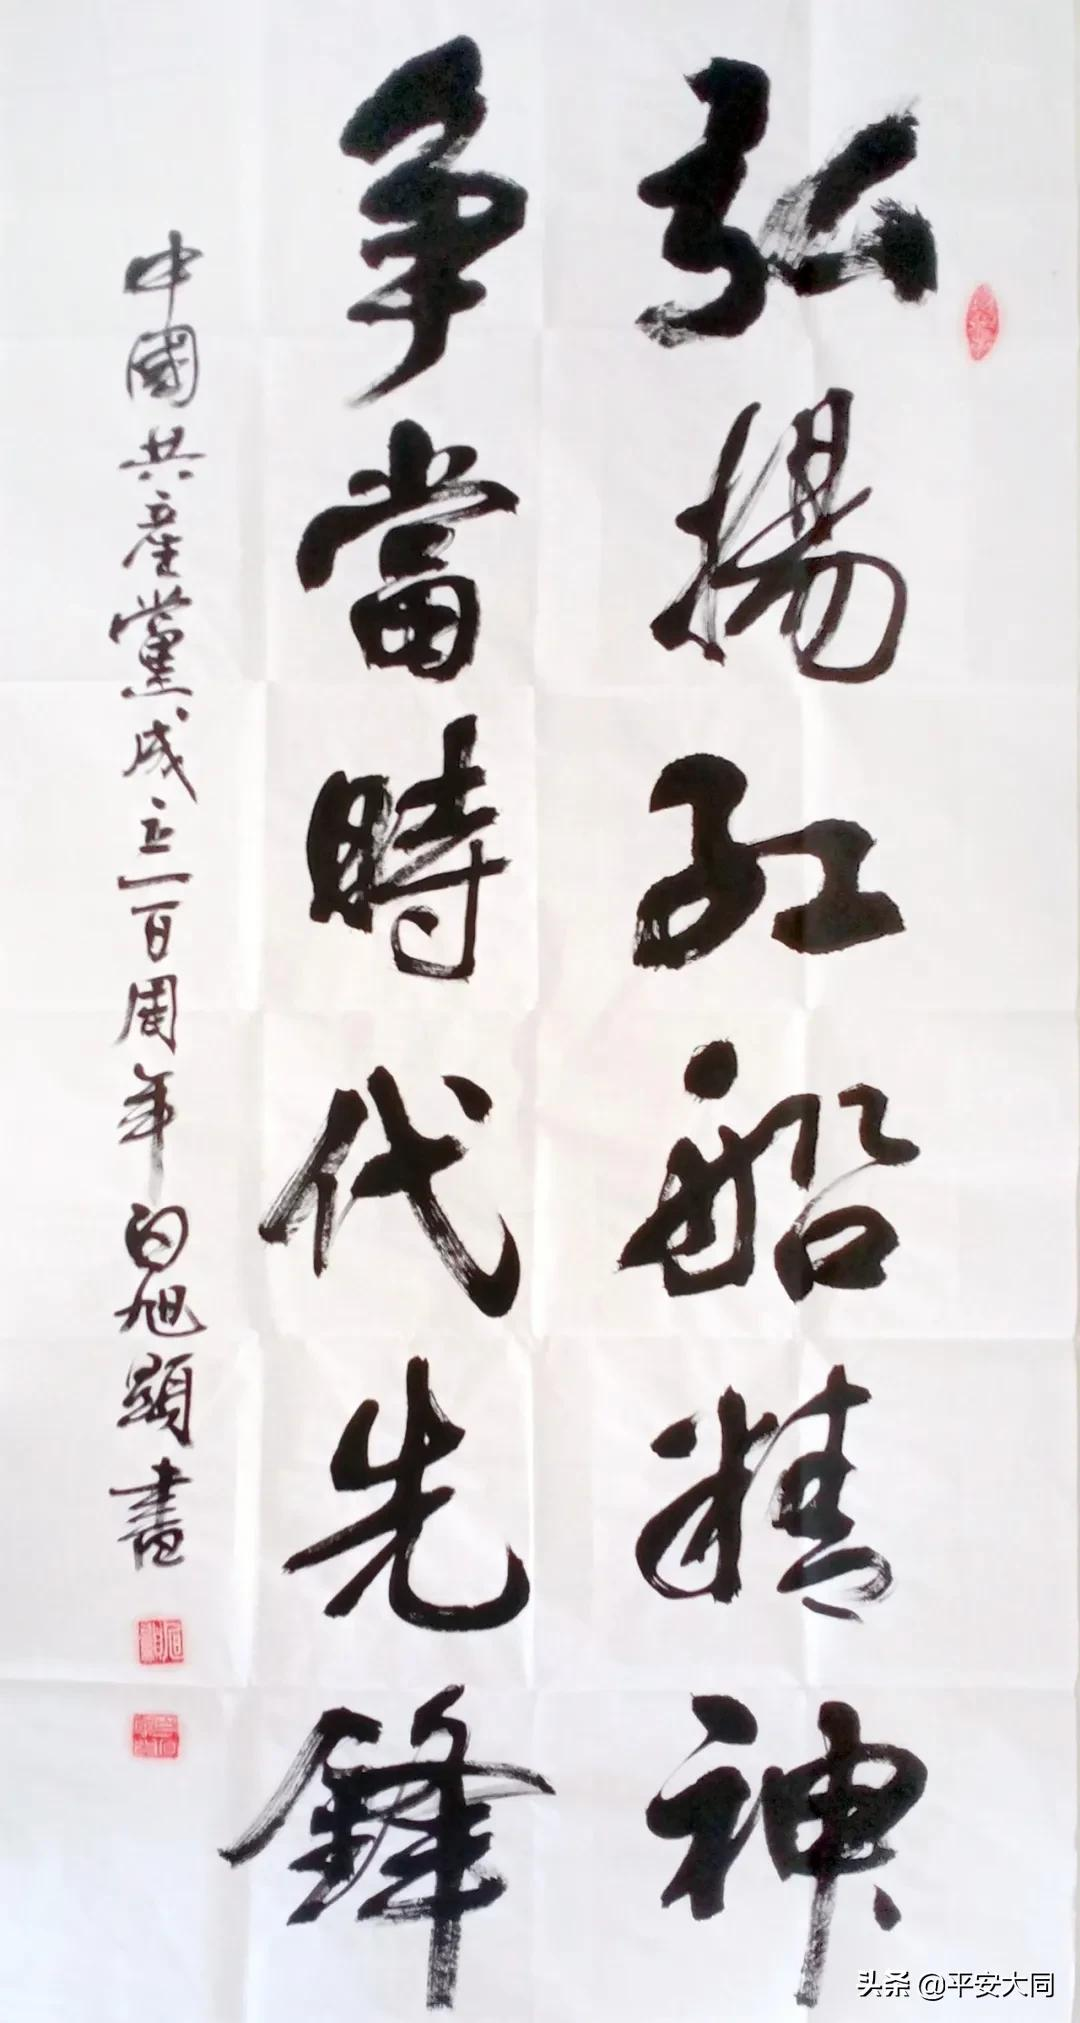 弘揚紅船精神
爭當時代先鋒
中國共產黨成立一百周年白旭顯書
头条 @平安大同